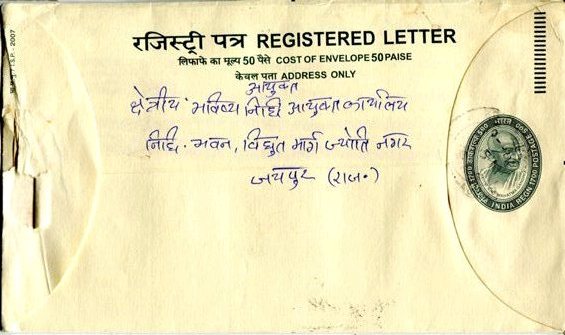 रजिस्ट्री पत्र REGISTERED LETTER
लिफाफे का मूल्य 50 पैसे COST OF ENVELOPE 50 PAISE
केवल पता ADDRESS ONLY
आयुक्त
क्षेत्रीय भविष्य निधि आयुक्त कार्यालय
निधि भवन, विद्युत मार्ग ज्योति नगर
जयपुर (राज॰)
भारत
INDIA REGN 1700 POSTAGE 500
I.S.P. - 2007